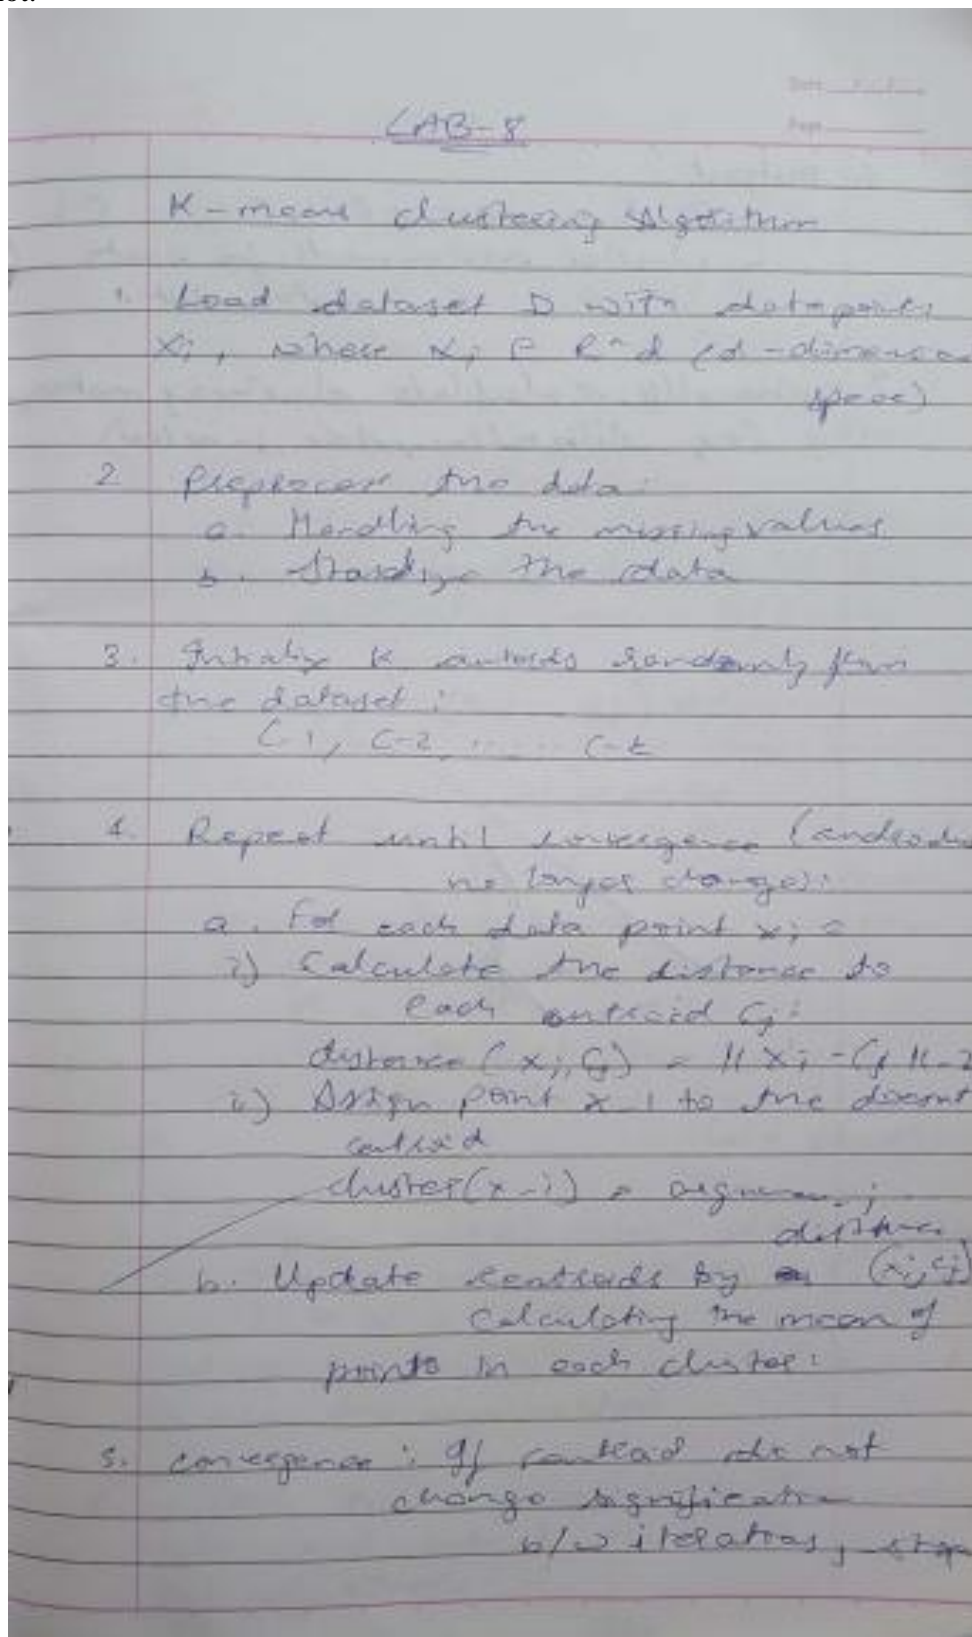 Date
Page
LAB-8
K-means clustering Algorithm
1. Load dataset D with datapoints
Xi, where Xi ∈ R^d (d-dimension
space)
2. Preprocess the data:
a. Handling the missing values
b. the data
3. K centroids randomly from
the dataset:
C-1, C-2, ...... C-k
4. Repeat until convergence (centroids
no longer changes):
a. For each data point xi =
i) Calculate the distance to
each centroid Cj:
distance (xi, Cj) = || Xi - Cj ||-2
ii) Assign point x-i to the
centroid
cluster(x-i) = j
distance
b. Update centroids by (xi, cj)
calculating the mean of
points in each cluster:
5. convergence: If centroid do not
change
b/w iterations, stop